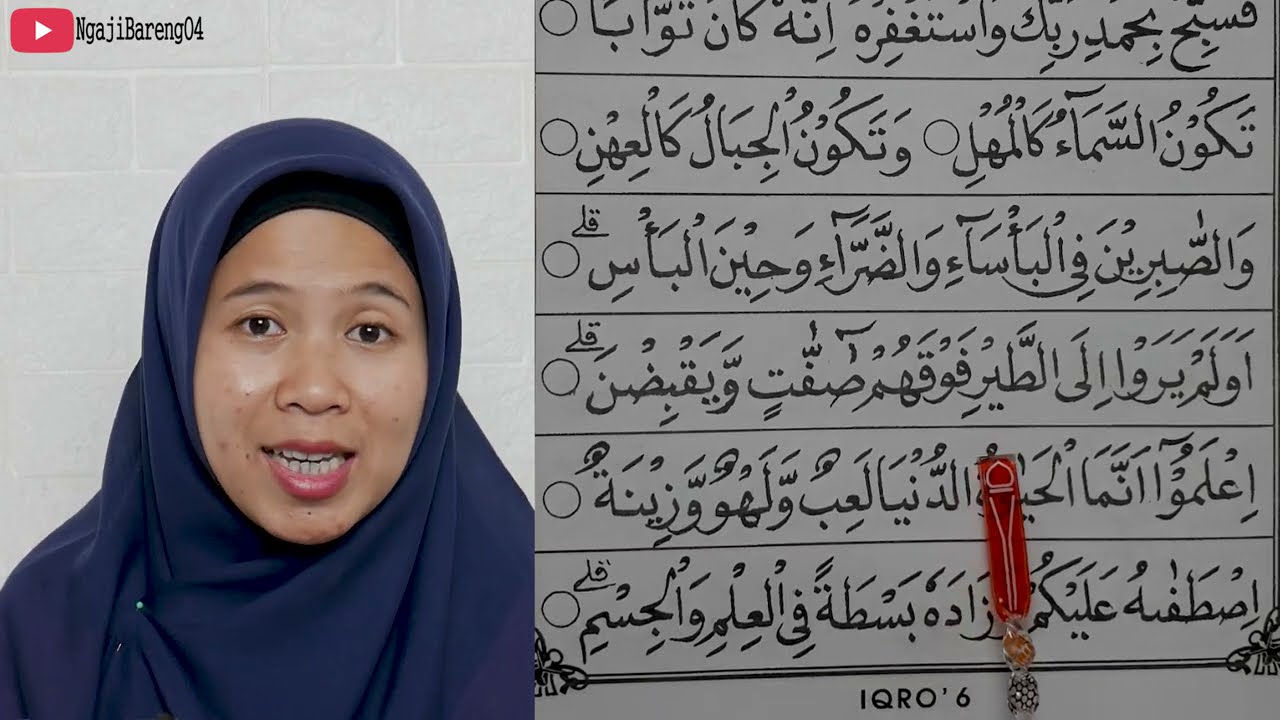 NgajiBareng04
فَسَبِّحْ بِحَمْدِ رَبِّكَ وَاسْتَغْفِرْهُ اِنَّهٗ كَانَ تَوَّابًا
تَكُوْنُ السَّمَآءُ كَالْمُهْلِ ○ وَتَكُوْنُ الْجِبَالُ كَالْعِهْنِ ○
وَالصّٰبِرِيْنَ فِى الْبَأْسَآءِ وَالضَّرَّآءِ وَحِيْنَ الْبَأْسِ ۗ ○
اَوَلَمْ يَرَوْا اِلَى الطَّيْرِ فَوْقَهُمْ صٰۤفّٰتٍ وَّيَقْبِضْنَ ۗ ○
اِعْلَمُوْٓا اَنَّمَا الْحَيٰوةُ الدُّنْيَا لَعِبٌ وَّلَهْوٌ وَّزِيْنَةٌ ○
اِصْطَفٰىهُ عَلَيْكُمْ وَزَادَهٗ بَسْطَةً فِى الْعِلْمِ وَالْجِسْمِ ۗ ○
IQRO' 6